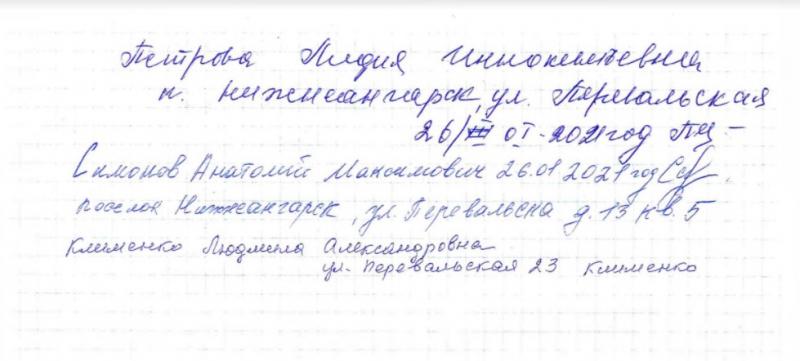 Петрова Лидия Иннокентьевна
п. Нижнеангарск, ул. Перевальская
26/ 01-2021 год
Симонов Анатолий Максимович 26.01 2021 год
поселок Нижнеангарск, ул. Перевальска д. 13 кв. 5
Клименко Людмила Александровна
ул. Перевальская 23 Клименко